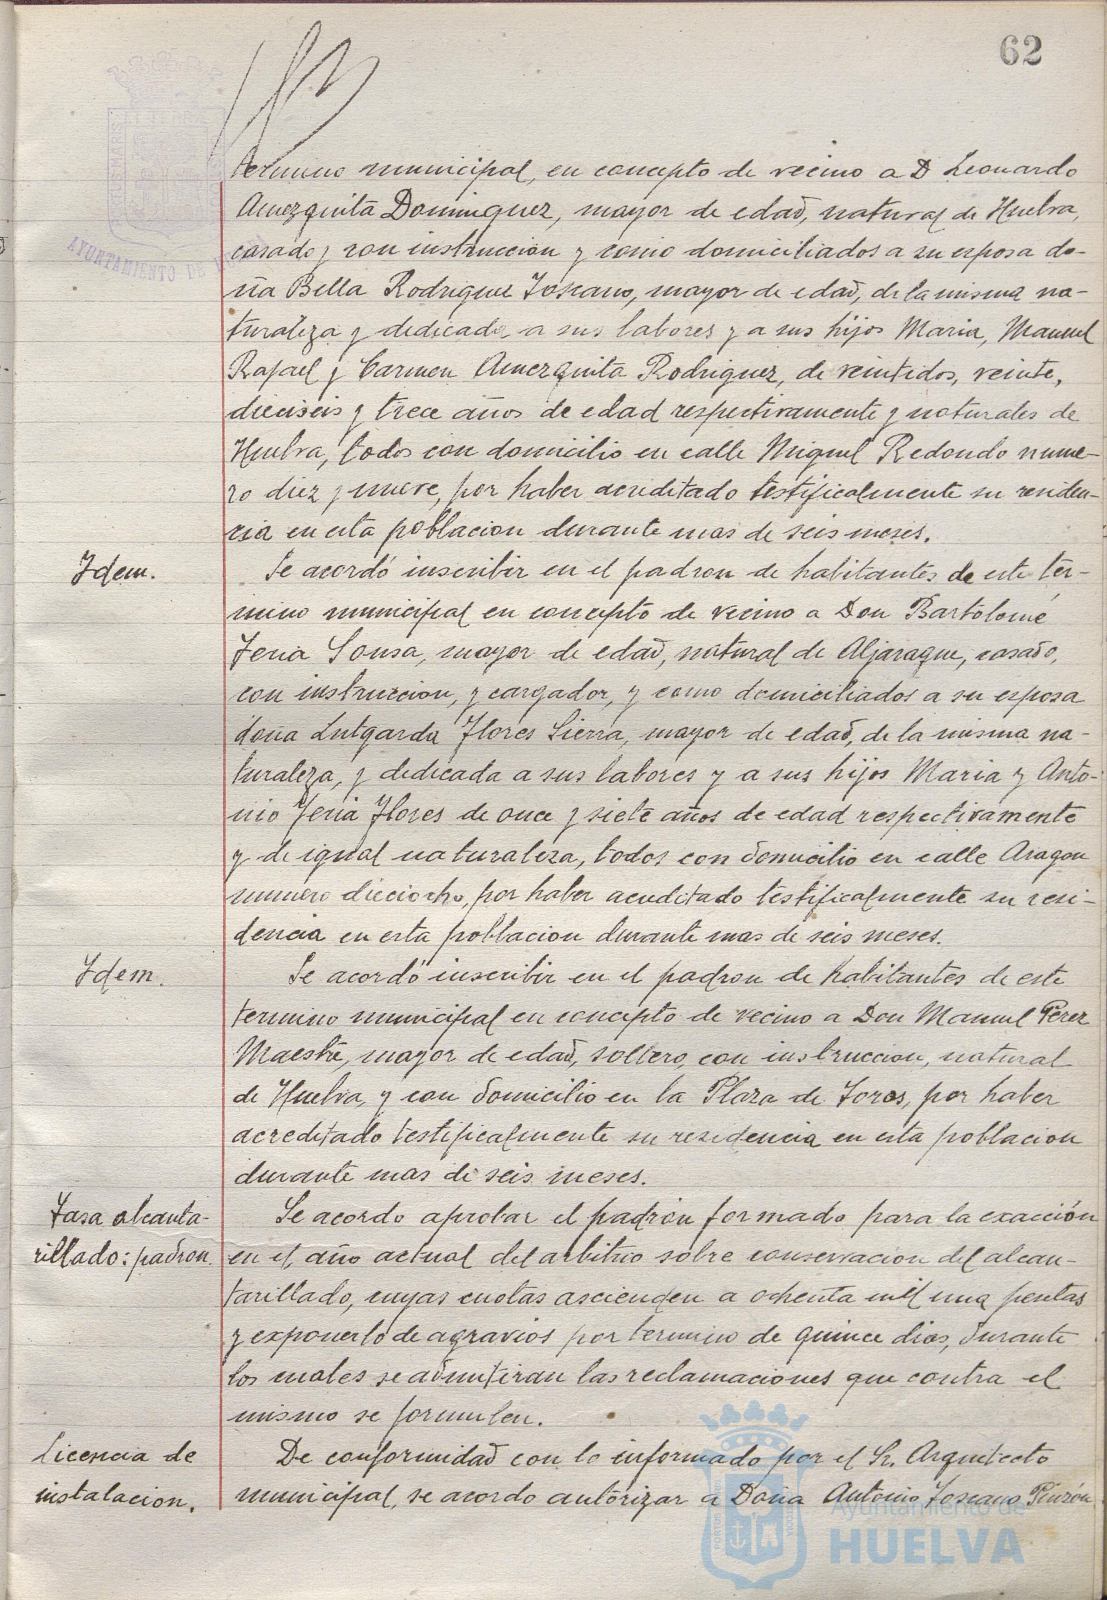 62
termino municipal, en concepto de vecino a D Leonardo
Amezquita Dominguez, mayor de edad, natural de Huelva,
casado, con instruccion y como domiciliados a su esposa do-
ña Bella Rodriguez Toscano, mayor de edad, de la misma na-
turaleza y dedicada a sus labores y a sus hijos Maria, Manuel
Rafael y Carmen Amezquita Rodriguez, de veintidos, veinte,
dieciseis y trece años de edad respectivamente y naturales de
Huelva, todos con domicilio en calle Miguel Redondo nume-
ro diez y nueve, por haber acreditado testificalmente su residen-
cia en esta poblacion durante mas de seis meses.
Idem.
Se acordó inscribir en el padron de habitantes de este ter-
mino municipal en concepto de vecino a Don Bartolomé
Feria Sousa, mayor de edad, natural de Aljaraque, casado,
con instruccion, y cargador, y como domiciliados a su esposa
doña Lutgarda Flores Sierra, mayor de edad, de la misma na-
turaleza, y dedicada a sus labores y a sus hijos Maria y Anto-
nio Feria Flores de once y siete años de edad respectivamente
y de igual naturaleza, todos con domicilio en calle Aragon
numero dieciocho, por haber acreditado testificalmente su resi-
dencia en esta poblacion durante mas de seis meses.
Idem.
Se acordó inscribir en el padron de habitantes de este
termino municipal en concepto de vecino a Don Manuel Perez
Maestre, mayor de edad, soltero, con instruccion, natural
de Huelva, y con domicilio en la Plaza de Toros, por haber
acreditado testificalmente su residencia en esta poblacion
durante mas de seis meses.
Tasa alcanta-
rillado: padron.
Se acordo aprobar el padrón formado para la exacción
en el año actual del arbitrio sobre conservacion del alcan-
tarillado, cuyas cuotas ascienden a ochenta mil una pesetas
y exponerlo de agravios por termino de quince dias, durante
los cuales se admitiran las reclamaciones que contra el
mismo se formulen.
Licencia de
instalacion.
De conformidad con lo informado por el Sr. Arquitecto
municipal, se acordo autorizar a Doña Antonio Toscano Pinzón
AYUNTAMIENTO DE
Ayuntamiento de
HUELVA